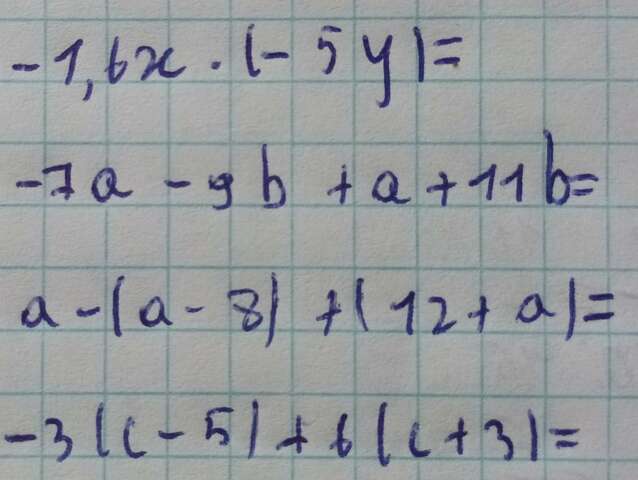 -1,6x · (-5y) =
-7a - 9b + a + 11b =
a - (a - 8) + (12 + a) =
-3(c - 5) + 6(c + 3) =